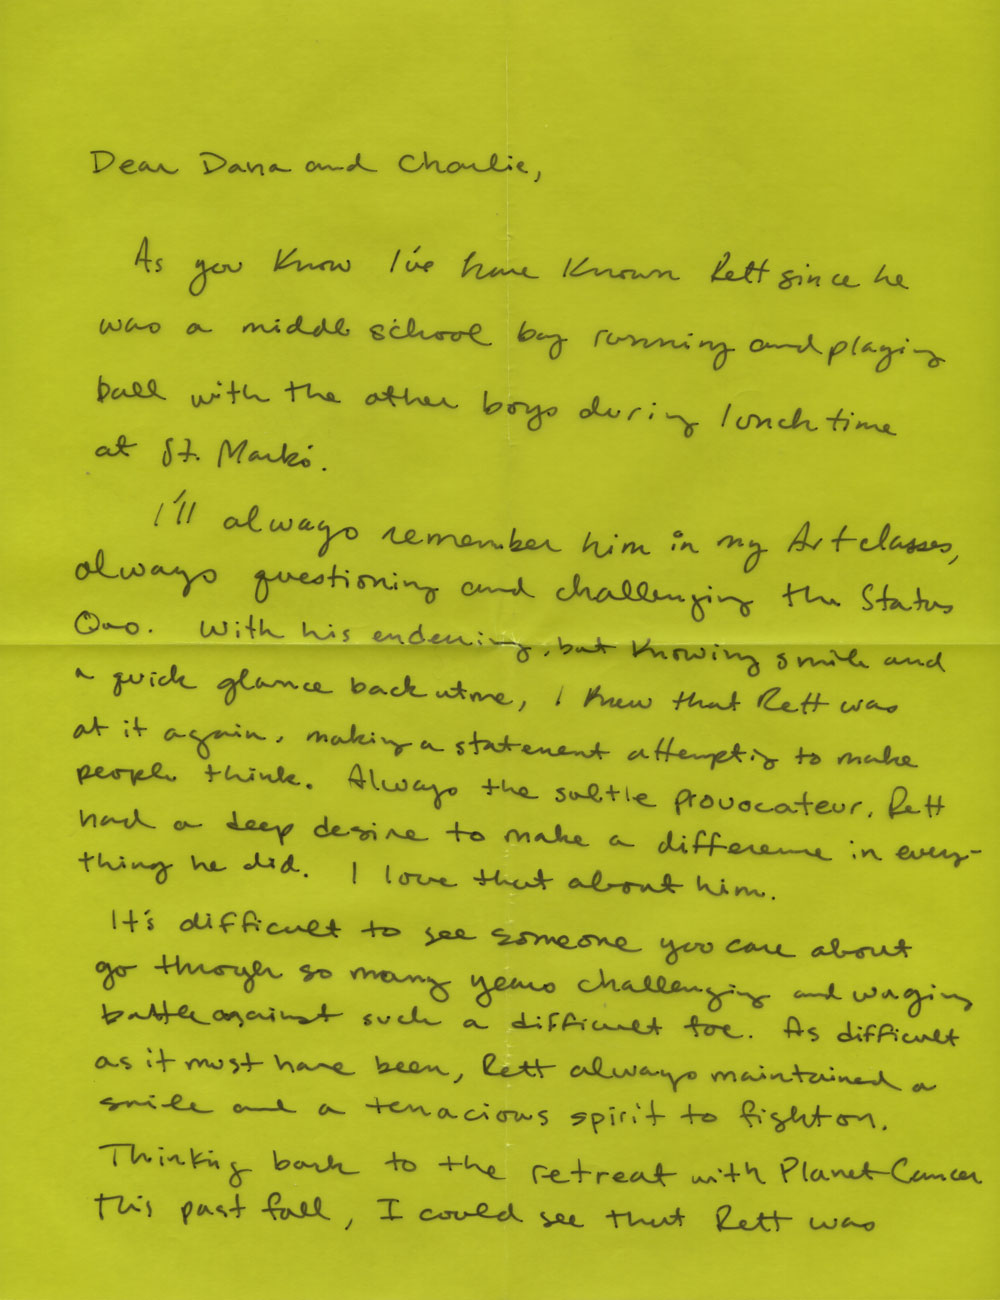 Dear Dana and Charlie,
As you know I've have known Rett since he
was a middle school boy running and playing
ball with the other boys during lunch time
at St. Marks.
I'll always remember him in my Art classes,
always questioning and challenging the Status
Quo. With his endearing, but knowing smile and
a quick glance back at me, I knew that Rett was
at it again, making a statement attempting to make
people think. Always the subtle provocateur, Rett
had a deep desire to make a difference in every-
thing he did. I love that about him.
It's difficult to see someone you care about
go through so many years challenging and waging
battle against such a difficult foe. As difficult
as it must have been, Rett always maintained a
smile and a tenacious spirit to fight on.
Thinking back to the retreat with Planet Cancer
this past fall, I could see that Rett was